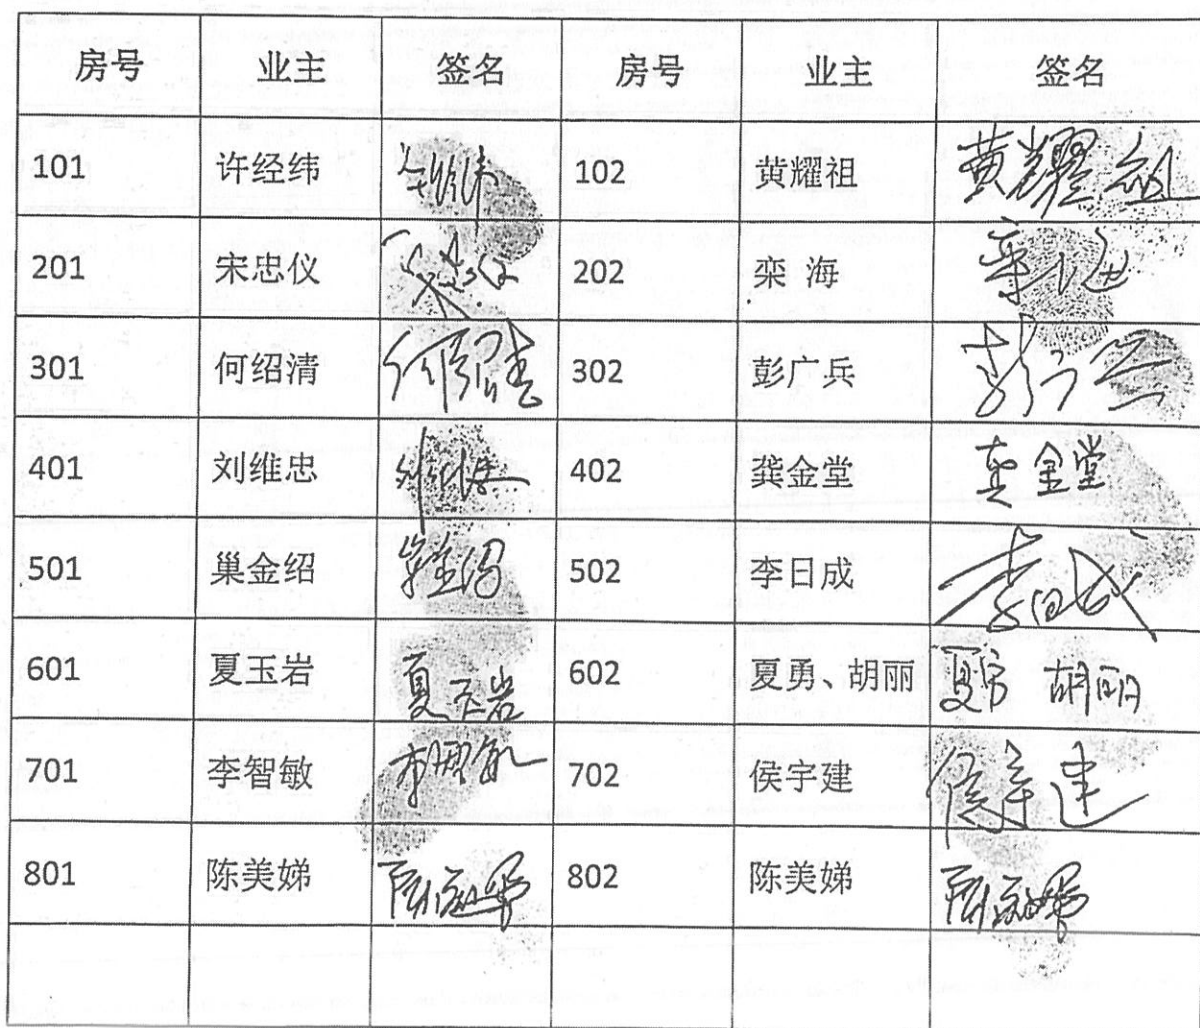 房号 业主 签名 房号 业主 签名
101 许经纬 102 黄耀祖 黄耀祖
201 宋忠仪 宋忠仪 202 栾 海 栾海
301 何绍清 何绍清 302 彭广兵 彭广兵
401 刘维忠 402 龚金堂 龚金堂
501 巢金绍 巢金绍 502 李日成 李日成
601 夏玉岩 夏玉岩 602 夏勇、胡丽 夏勇 胡丽
701 李智敏 李智敏 702 侯宇建 侯宇建
801 陈美娣 802 陈美娣